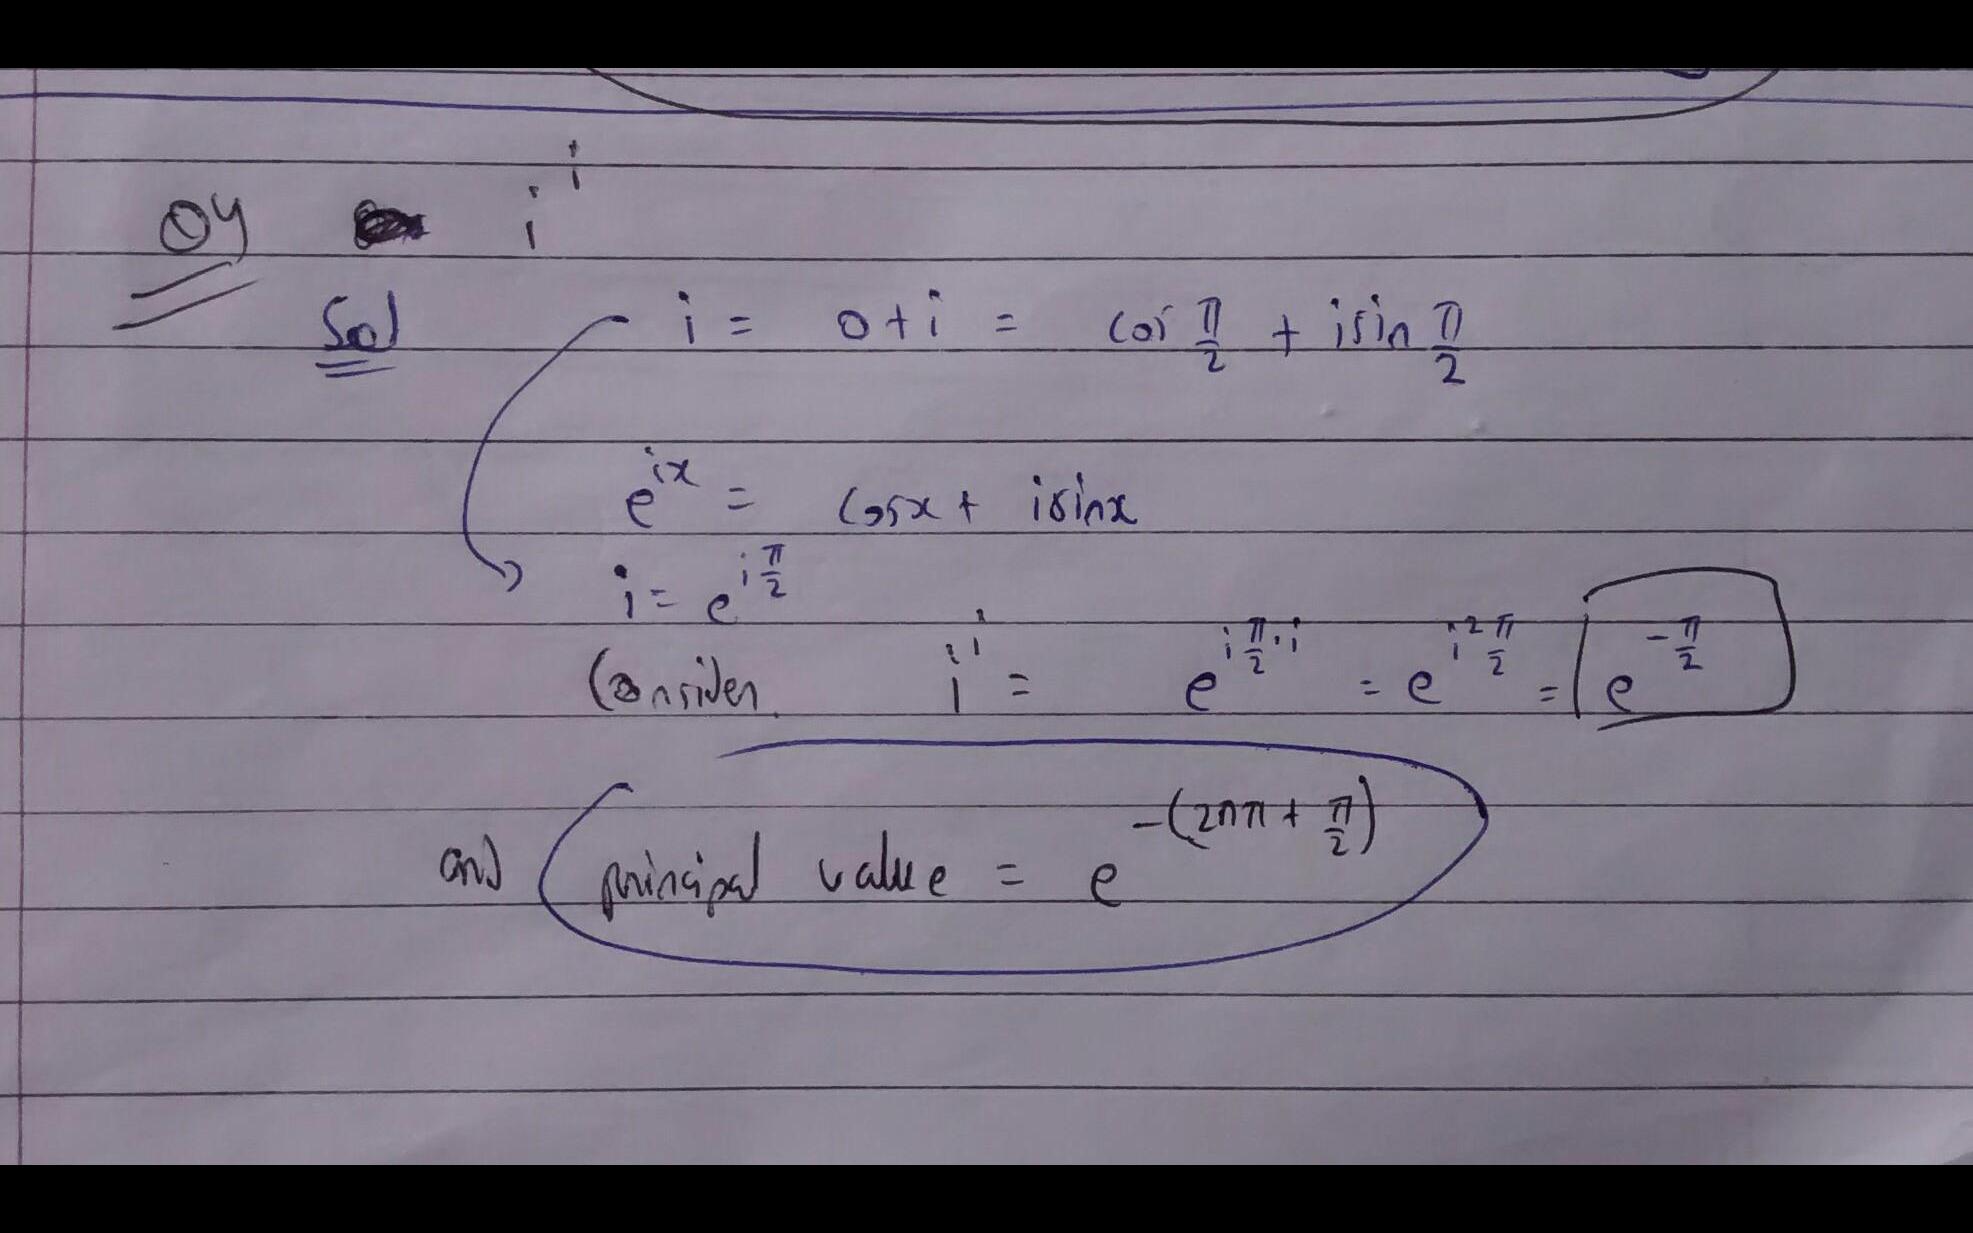 Q4 i^i
Sol i = 0 + i = cos π/2 + i sin π/2
e^{ix} = cosx + isinx
i = e^{i π/2}
Consider i^i = e^{i π/2 · i} = e^{i² π/2} = e^{-π/2}
and principal value = e^{-(2nπ + π/2)}